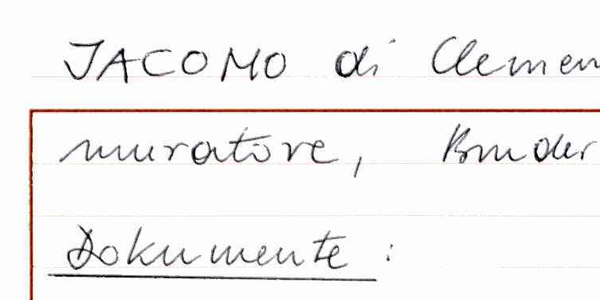 JACOMO di Clemen
muratore, Bruder
Dokumente :